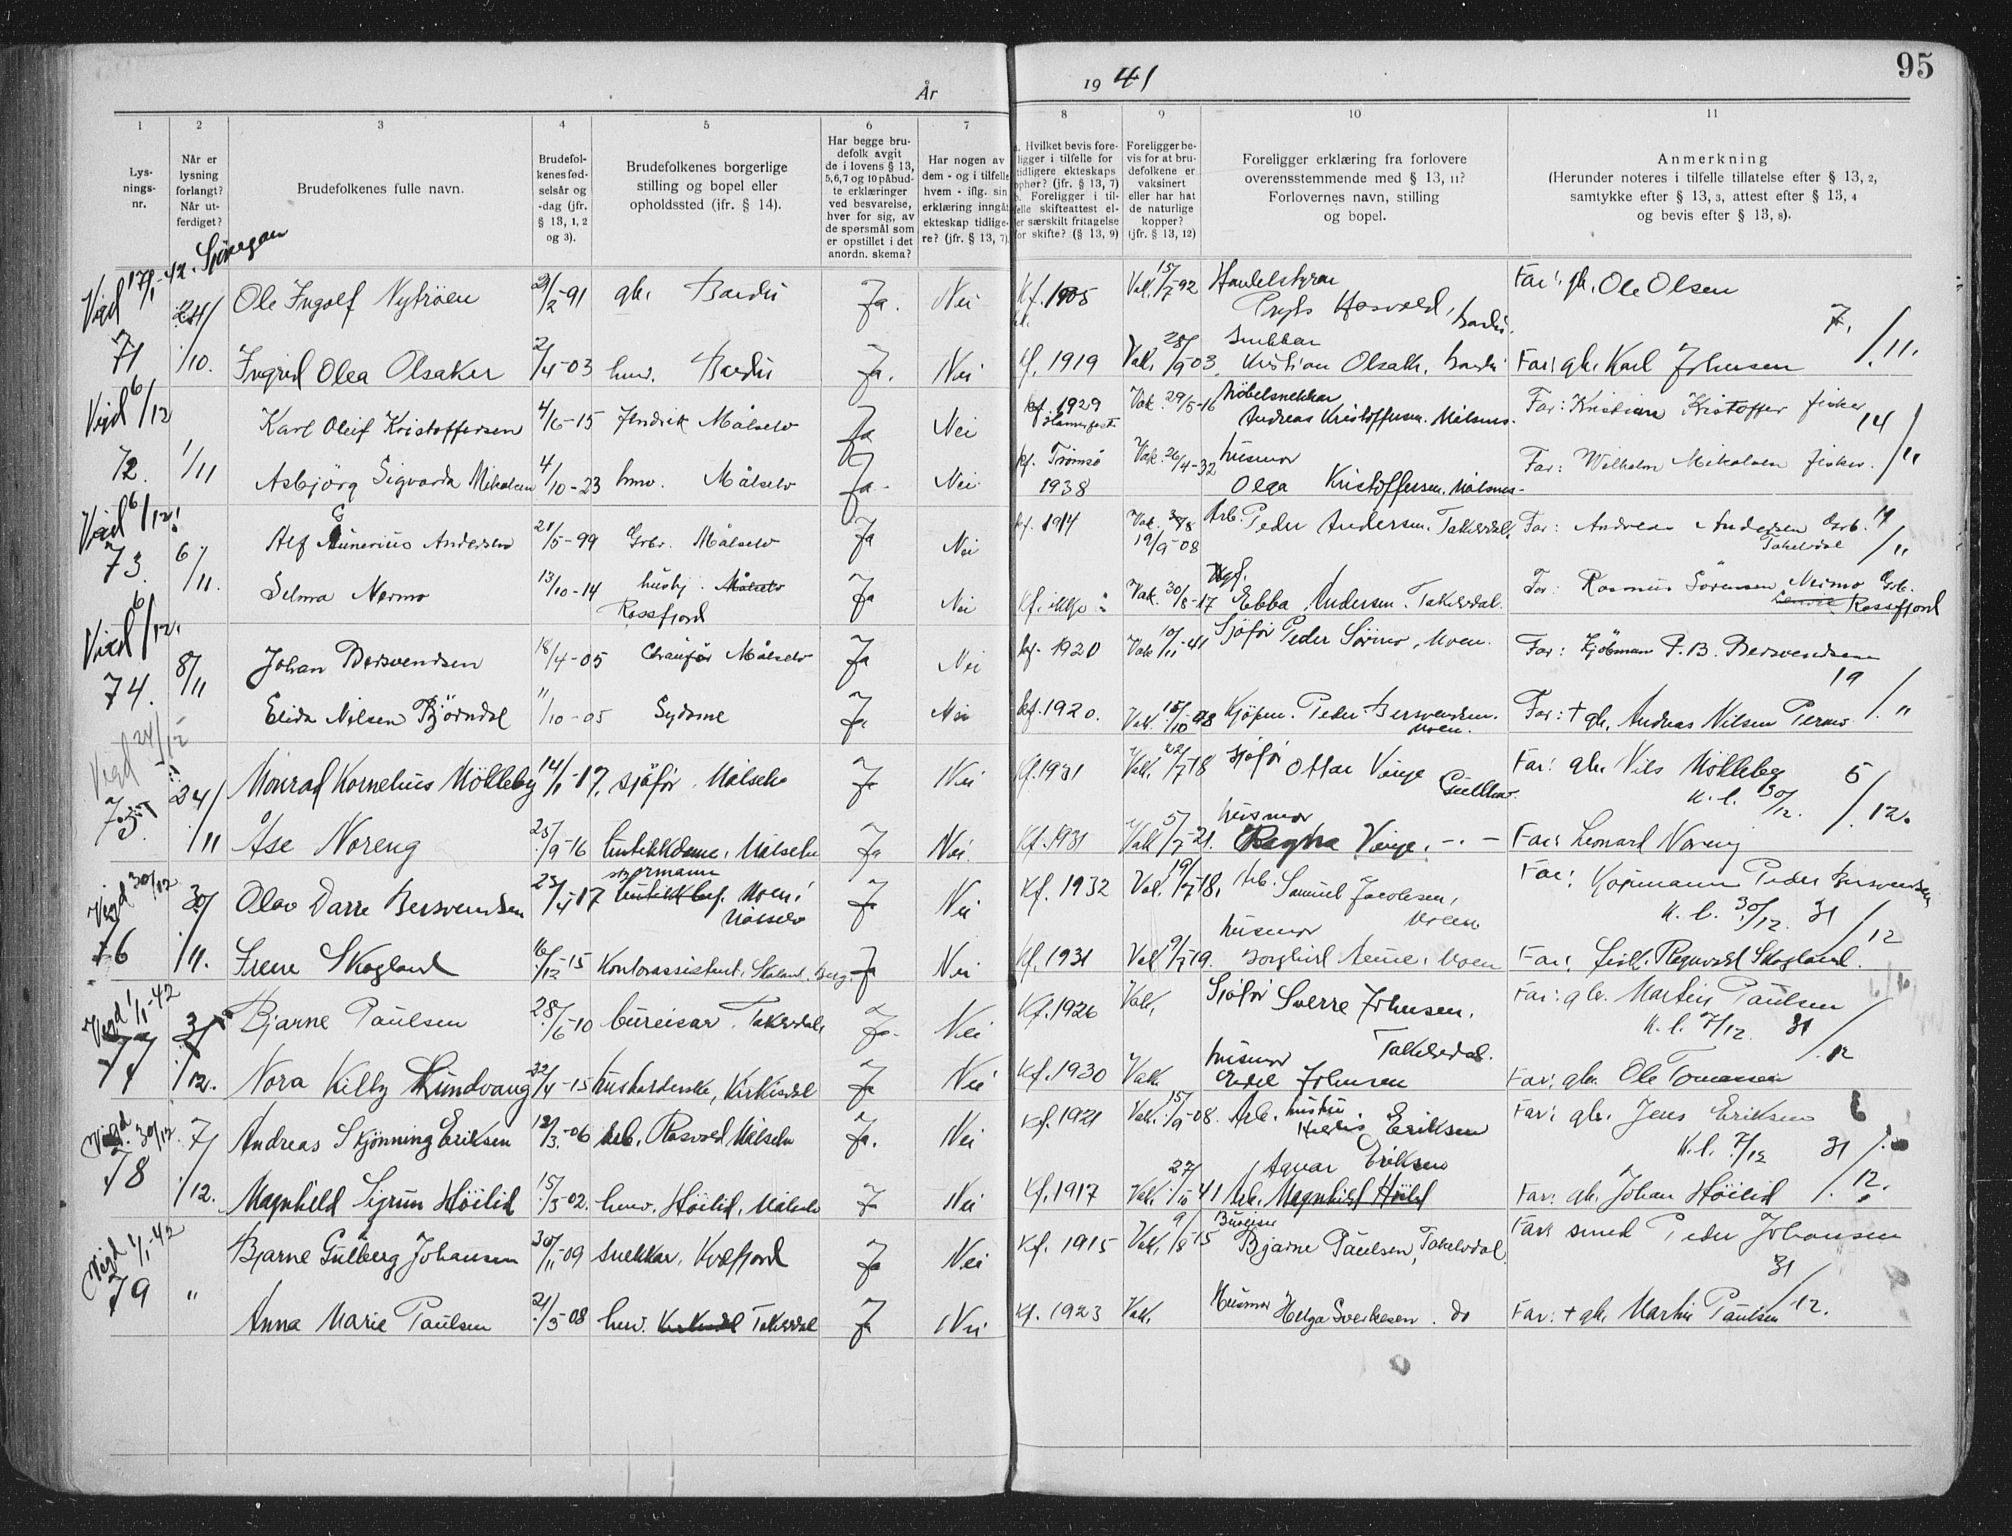 95
År 1941
1 2 3 4 5 6 7 8 9 10 11
Lys-
nings-
nr.
Når er
lysning
forlangt?
Når ut-
ferdiget?
Brudefolkenes fulle navn.
Brudefol-
kenes fød-
selsår og
-dag (jfr.
§ 13, 1, 2
og 3).
Brudefolkenes borgerlige
stilling og bopel eller
opholdssted (jfr. § 14).
Har begge bru-
defolk avgit
de i lovens § 13,
5,6,7 og 10 påbud-
te erklæringer
ved besvarelse,
hver for sig, av
de spørsmål som
er opstillet i det
anordn. skema?
Har nogen av
dem - og i tilfelle
hvem - iflg. sin
erklæring inngåt
ekteskap tidlige-
re? (jfr. § 13, 7)
Hvilket bevis fore-
ligger i tilfelle for
tidligere ekteskaps
ophør? (jfr. § 13, 7)
b. Foreligger i til-
felle skifteattest el-
ler særskilt fritagelse
for skifte? (§ 13, 9)
Foreligger be-
vis for at bru-
defolkene er
vaksinert
eller har hat
de naturlige
kopper?
(jfr. § 13, 12)
Foreligger erklæring fra forlovere
overensstemmende med § 13, 11?
Forlovernes navn, stilling
og bopel.
Anmerkning
(Herunder noteres i tilfelle tillatelse efter § 13, 2,
samtykke efter § 13, 3, attest efter § 13, 4
og bevis efter § 13, 8).
Vigd 17/1-42. Sjøvegan
24/ Ole Ingolf Nytrøen 21/2-91 gb. Bardu Ja. Nei Kf. 1905 Vak. 15/7 92 Far: gb. Ole Olsen
71 /10. Ingrid Olea Olsaker 2/4-03 husv. Bardu Ja. Nei Kf. 1919 Vak. 28/9 03. Kristian Olsak. Bardu Far: gb. Karl Johnsen 7./11.
Vigd 6/12 Karl Oleif Kristoffersen 4/6-15 Målselv Ja Nei Kf. 1929 Hammerfest Vak. 29/5-16 Møbelsnekkar Andreas Kristoffersen. Målsnes. Far: Kristian Kristoffer fisker
72. 1/11 Asbjörg Sigvarda Mikalsen 4/10-23 hmv. Målselv Ja. Nei Kf. Tromsø 1938 Vak. 26/4-32 husmor Olga Kristoffersen. Målsnes. Far: Wilhelm Mikalsen fisker. 14/11
Vigd 6/12! Alf Andersen 21/5-99 Grbr. Målselv Ja Nei Kf. 1914 Vak. 19/9-08 Arb. Peder Andersen. Takelvdal. Far: Andreas Andersen Grb. Takelvdal
73. 6/11. Selma Nermo 13/10-14 hushj. Målselv Rossfjord Ja Nei Kf. ikke Vak. 30/8-17 Ebba Andersen. Takelvdal. Far: Rasmus Sörensen Nermo Grb. Rossfjord 14/11
Vigd 6/12. Johan Bersvendsen 18/4-05 Chauför Målselv Ja Nei Kf. 1920 Vak 10/11-41 Sjåfør Peder Sörmo, Moen. Far: Kjøbman P. B. Bersvendsen
74. 8/11 Elida Nilsen Björndal 11/10-05 Sydame Ja Nei Kf. 1920. Kjøpm. Peder Bersvendsen. Moen. Far: + gb. Andreas Nilsen 19/11
Vigd 24/12 24/ Monrad Kornelius Mölleby 14/1-17, sjåfør. Målselv Ja Nei Kf. 1931 Vak. 22/7 18 sjåfør Ottar Vinje Far: gb. Nils Mölleby K. l. 30/12.
75. /11 Åse Noreng 25/9-16 butikkdame, Målselv Ja Nei. Kf. 1931 Vak 5/7-21. husmor Ragna Vinje. -"- Far: Leonard Noreng 5/12.
Vigd 30/12 30/ Olav Darre Bersvendsen 23/4-17 Moen, Målselv Ja Nei Kf. 1932 Vak. 19/7-18. Arb. Samuel Jacobsen, Moen Far: Kjøpmann Peder Bersvendsen K. l. 30/12.
76 /11. Irene Skogland 16/12-15 Kontorassistent, Skaland, Berg Ja Nei Kf. 1931 Vak 9/7-19. husmor Moen Far: fisk. Ragnvald Skogland. 31/12
Vigd 1/1-42 Bjarne Paulsen 28/6-10 bureisar. Takelvdal. Ja. Nei Kf. 1926 Vak. Sjåfør Sverre Johnsen, Takelvdal. Far: gb. Martin Paulsen K. l. 7/12.
77 /12. Nora Killy Lundvang 22/4-15 husholderske, Kirkesdal Ja Nei Kf. 1930 Vak. husmor Johnsen Far: gb. Ole Tomassen 31/12
Vigd. 30/12 7/ Andreas Skjönning Eriksen 12/3-06 Arb. Rosvold, Målselv Ja. Nei Kf. 1921 Vak. 15/9-08. Arb. Eriksen Far: gb. Jens Eriksen K. l. 7/12
78 /12. Magnhild Sigrun Höilid 15/3-02. husv. Höilid, Målselv Ja Nei Kf. 1917 Vak. 27/11 41 Arb. Magnhild Höilid Agnar Eriksen Far: gb. Johan Höilid 31/12.
Vigd 1/1-42 Bjarne Gulberg Johansen 30/11-09 snekkar, Kvæfjord Ja Nei Kf. 1915 Vak. 9/8-15 Bureiser Bjarne Paulsen, Takelvdal Far: smed Peder Johansen
79 " Anna Marie Paulsen 21/3-08 husv. Kirkesdal Takelvdal Ja Nei Kf. 1923 Vak. Husmor Helga Sverkesen. do Far: + gb. Martin Paulsen 31/12.